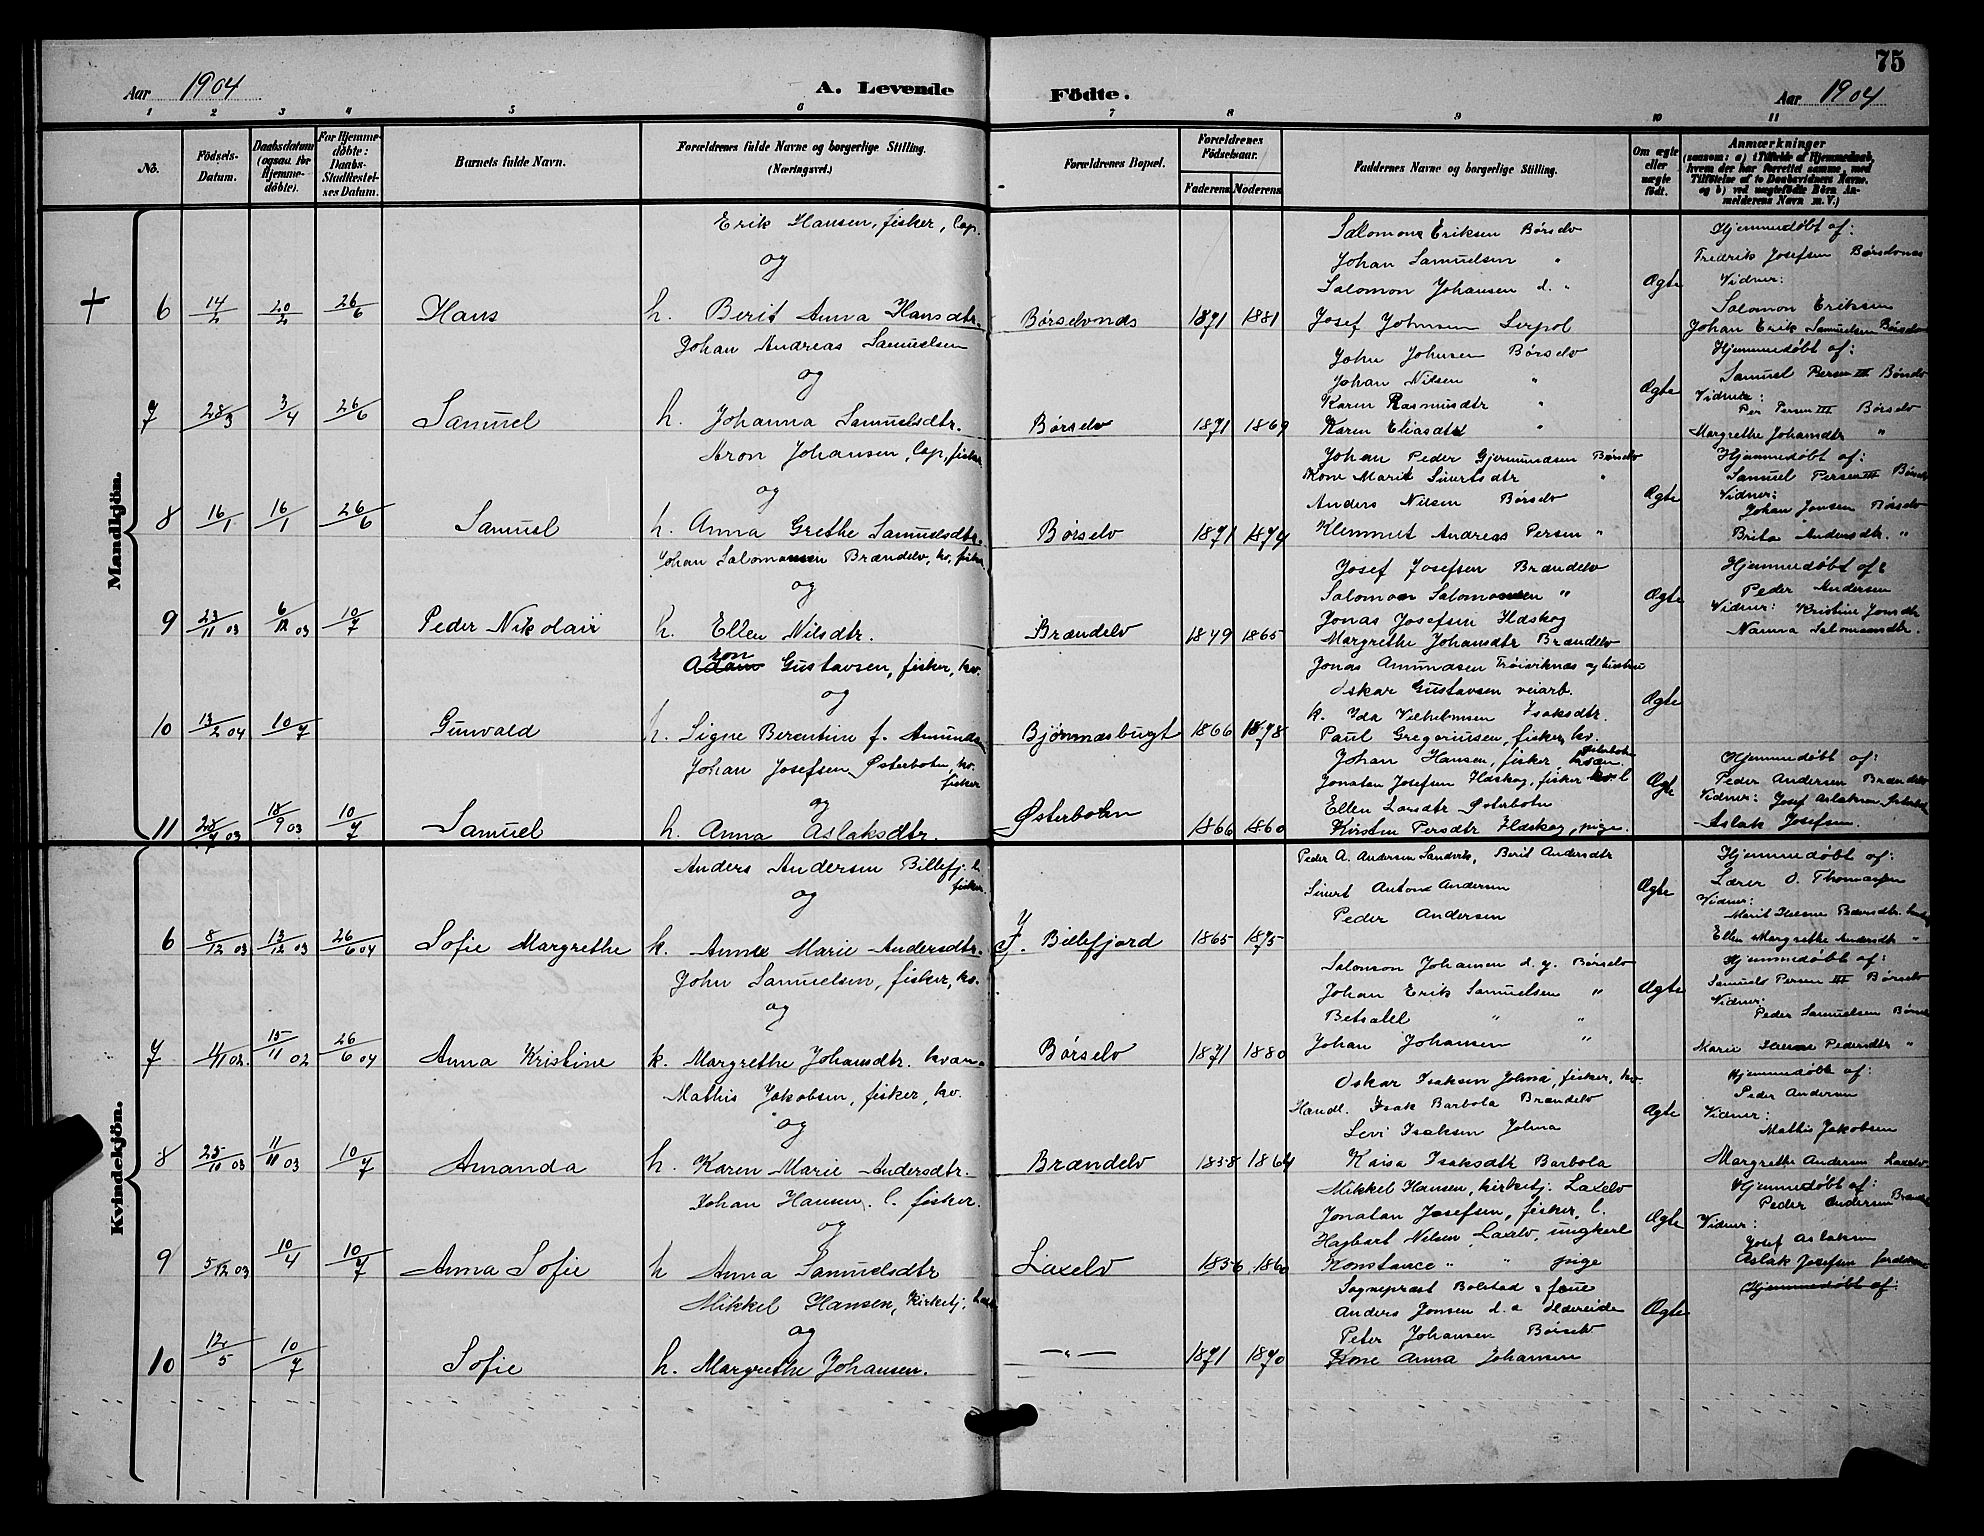 75
Aar 1904 A. Levende Födte. Aar 1904
1 2 3 4 5 6 7 8 9 10 11
No.
Födsels-Datum.
Daabsdatum (ogsaa for Hjemme-döbte).
For Hjemme-döbte: Daabs-Stadfæstel-ses Datum.
Barnets fulde Navn.
Forældrenes fulde Navne og borgerlige Stilling. (Næringsvei.)
Forældrenes Bopæl.
Forældrenes Födselsaar.
Faderens. Moderens.
Faddernes Navne og borgerlige Stilling.
Om ægte eller uægte födt.
Anmærkninger
(saasom: a) i Tilfælde af Hjemmedaab, hvem der har forrettet samme, med Tilföielse af to Daabsvidners Navne, og b) ved uægtefödte Börn An-melderens Navn m. V.)
Mandkjön.
Erik Hansen, fisker, lap.
og
+ 6 14/2 20/2 26/6 Hans h. Berit Anna Hansdtr. Børselvnæs 1871 1881
Salomon Eriksen Børselv
Johan Samuelsen "
Salomon Johansen d. "
Josef Johnsen Lerpol
Ægte
Hjemmedøbt af:
Fredrik Josefsen Børselvnæs
Vidner:
Salomon Eriksen
Johan Erik Samuelsen Børselv
Johan Andreas Samuelsen
og
7 28/3 3/4 26/6 Samuel h. Johanna Samuelsdtr. Børselv 1871 1869
John Johnsen Børselv
Johan Nilsen "
Karen Rasmusdtr "
Karen Eliasdtr "
Ægte
Hjemmedøbt af:
Samuel Persen III Børselv
Vidner:
Per Persen III Børselv
Margrethe Johansdtr "
Aron Johansen, lap, fisker
og
8 16/1 16/1 26/6 Samuel h. Anna Grethe Samuelsdtr. Børselv 1871 1874
Johan Peder Gjermundsen Børselv
Kone Marit Sivertsdtr "
Anders Nilsen Børselv
Klemmet Andreas Persen "
Ægte
Hjemmedøbt af:
Samuel Persen III Børselv
Vidner:
Johan Jonsen Børselv
Brita Andersdtr. "
Johan Salomonsen Brændelv, kv. fisker
og
9 23/11 03 6/12 03 10/7 Peder Nikolair h. Ellen Nilsdtr. Brændelv 1849 1865
Josef Josefsen Brændelv
Salomon Salomonsen "
Jonas Josefsen Ildskog
Margrethe Johansdtr Brændelv
Ægte
Hjemmedøbt af
Peder Andersen
Vidner: Kristine Jonsdtr
Nanna Salomonsdtr.
Aron Gustavsen, fisker, kv.
og
10 13/2 04 10/7 Gunvald h. Signe Berentine f. Amundsen Bjørnnæsbugt 1866 1878
Jonas Amundsen Trøiviknæs og hustru
Oskar Gustavsen veiarb.
k. Ida Vilhelmsen Isaksdtr.
Paul Gregoriusen, fisker, kv.
Ægte
Johan Josefsen Østerboten, kv.
fisker
og
11 28/7 03 18/9 03 10/7 Samuel h. Anna Aslaksdtr. Østerboten 1866 1860
Johan Hansen, fisker, kvæn Østerboten
Jonatan Josefsen Ildskog, fisker l
Ellen Larsdtr Østerboten
Kirsten Persdtr Ildskog, pige.
Ægte
Hjemmedøbt af:
Peder Andersen Brændelv
Vidner: Josef Aslaksen
Aslak Josefsen.
Kvindekjön.
Anders Andersen Billefj. l.
fisker
og
6 8/12 03 13/12 03 26/6 04 Sofie Margrethe k. Anne Marie Andersdtr. Y. Billefjord 1865 1875
Peder A. Andersen Sandvik, Berit Andersdtr
Sivert Anton Andersen
Peder Andersen
Ægte
Hjemmedøbt af:
Lærer O. Thomassen
Vidner:
Marit Helene
Ellen Margrethe Andersdtr "
John Samuelsen, fisker, kv.
og
7 1/11 02. 15/11 02 26/6 04 Anna Kristine k. Margrethe Johansdtr. kvæn. Børselv 1871 1880
Salomon Johansen d. y. Børselv
Johan Erik Samuelsen "
Betsalel " "
Johan Johansen "
Ægte
Hjemmedøbt af:
Samuel Persen III Børselv
Vidner:
Peder Samuelsen Børselv
Marie Helene Pedersdtr "
Mathis Jakobsen, fisker, kv.
og
8 25/10 03 11/11 03 10/7 Amanda h. Karen Marie Andersdtr. Brændelv 1858 1864
Oskar Isaksen Jolma, fisker, kv.
Handl. Isak Barbola Brændelv
Levi Isaksen Jolma
Kaisa Isaksdtr Barbola
Ægte
Hjemmedøbt af:
Peder Andersen
Vidner:
Mathis Jakobsen
Margrethe Andersen Laxelv
Johan Hansen, l. fisker.
og
9 5/12 03 10/4 10/7 Anna Sofie h Anna Samuelsdtr Laxelv 1856 1860
Mikkel Hansen, kirketj. Laxelv
Jonatan Josefsen, fisker, l.
Hagbart Nilsen, Laxelv, ungkarl
Konstance " " pige
Ægte
Hjemmedøbt af:
Peder Andersen Brændelv
Vidner:
Josef Aslaksen
Aslak Josefsen
Hjemmedøbt af:
Mikkel Hansen, kirketj.
og
10 12/5 10/7 Sofie h. Margrethe Johansen. —"— 1871 1870
Sognepræst Bolstad & frue
Anders Jonsen d. æ Ildereide
Peter Johansen Børselv
Kone Anna Johansen
Ægte